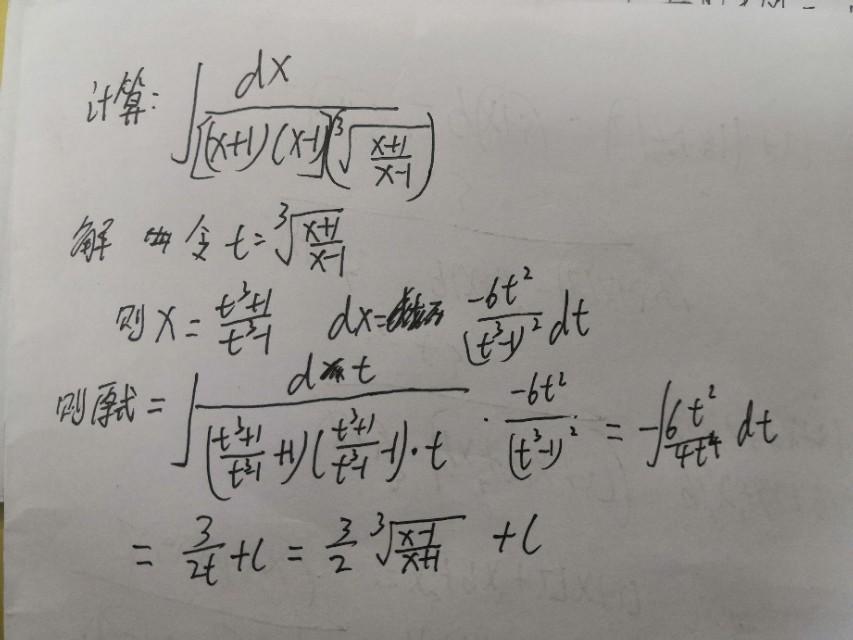 计算: ∫ dx / ([(x+1)(x-1)] ∛((x+1)/(x-1)))
解 令 t = ∛((x+1)/(x-1))
则 x = (t³+1)/(t³-1) dx = (-6t²)/(t³-1)² dt
则原式 = ∫ dt / (((t³+1)/(t³-1) + 1)((t³+1)/(t³-1) - 1)·t) · (-6t²)/(t³-1)² = -∫ 6t²/4t⁴ dt
= 3/(2t) + C = 3/2 ∛((x-1)/(x+1)) + C